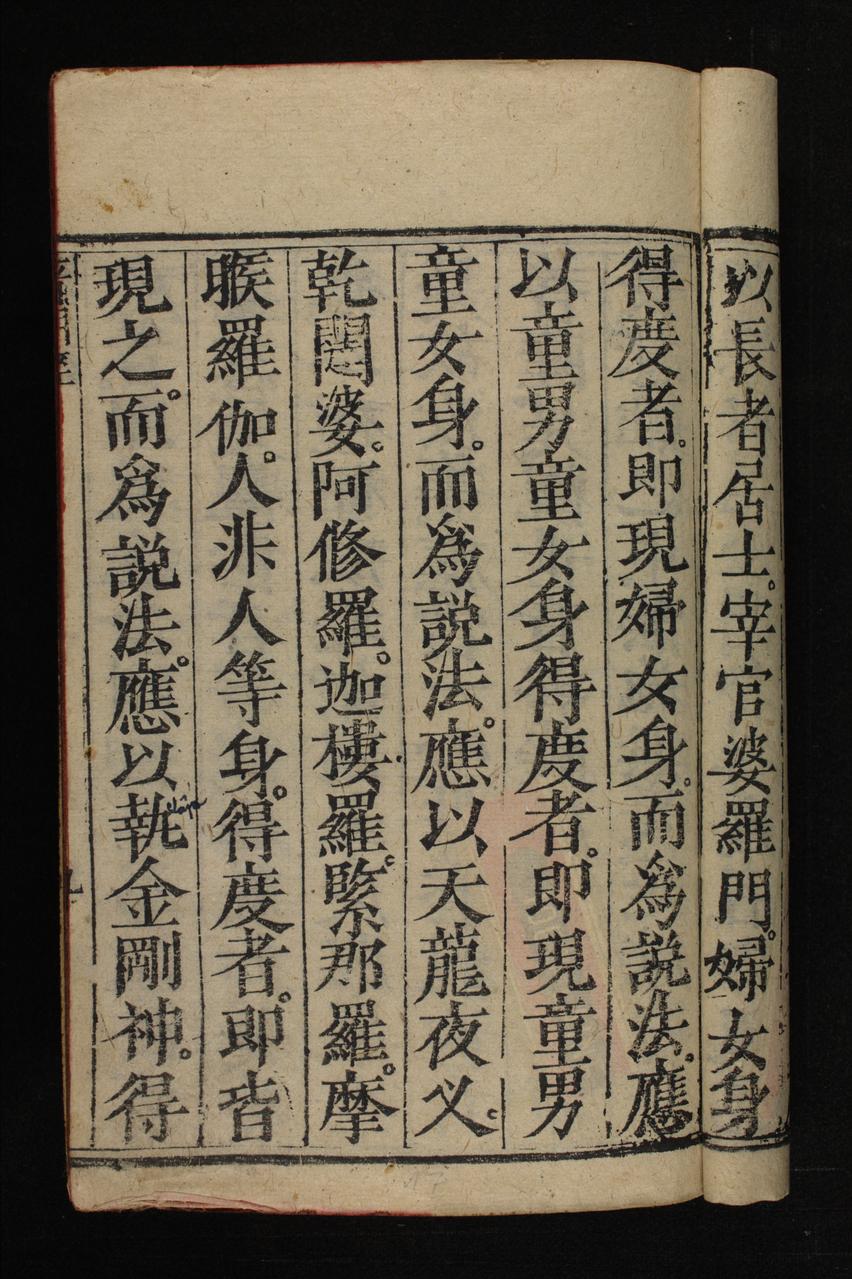 以長者居士。宰官婆羅門。婦女身
得度者。即現婦女身。而爲說法。應
以童男童女身得度者。即現童男
童女身。而爲說法。應以天龍夜义。
乾闥婆。阿修羅。迦樓羅。緊那羅。摩
睺羅伽。人非人等身。得度者。即皆
現之。而爲說法。應以執金剛神。得